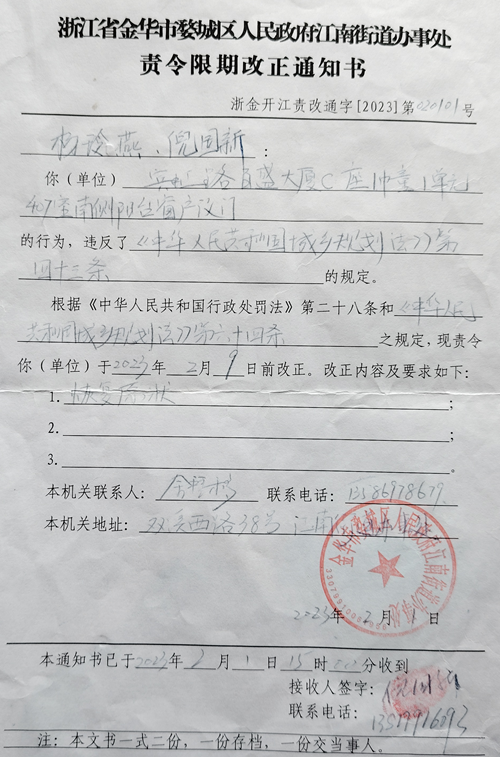 浙江省金华市婺城区人民政府江南街道办事处
责令限期改正通知书
浙金开江责改通字[2023]第020101号
杨玲燕、倪国新:
你(单位) 宾虹西路百盛大厦C座1幢1单元
407室南侧阳台窗户改门
的行为,违反了《中华人民共和国城乡规划法》第
四十三条 的规定。
根据《中华人民共和国行政处罚法》第二十八条和《中华人民
共和国城乡规划法》第六十四条 之规定,现责令
你(单位)于2023年2月9日前改正。改正内容及要求如下:
1. 恢复原状 ;
2. ;
3. 。
本机关联系人: 联系电话: 13586978679
本机关地址: 双溪西路38号 江南
金华市婺城区人民政府江南街道办事处
2023年2月1日
本通知书已于2023年2月1日15时 分收到
接收人签字: 倪国新
联系电话:
注:本文书一式二份,一份存档,一份交当事人。